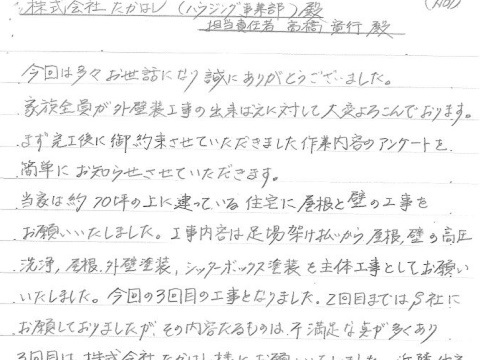 株式会社たかはし(ハウジング事業部)殿
担当責任者 高橋 行 殿
(No1)
今回は多々お世話になり誠にありがとうございました。
家族全員が外壁装工事の出来ばえに対して大変よろこんでおります。
まず完工後に御約束させていただきました作業内容のアンケートを
簡単にお知らせさせていただきます。
当家は約70坪の上に建っている住宅に屋根と壁の工事を
お願いいたしました。工事内容は足場架け払いから屋根,壁の高圧
洗浄,屋根,外壁塗装,シャッターボックス塗装を主体工事としてお願い
いたしました。今回の3回目の工事となりました。2回目まではS社に
お願しておりましたが,その内容たるものは不満足な点が多くあり
3回目は株式会社たかはし様にお願いいたしました。